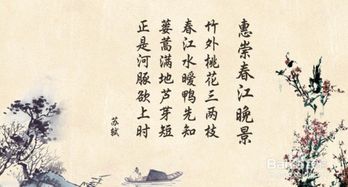 惠崇春江晚景
竹外桃花三两枝
春江水暖鸭先知
蒌蒿满地芦芽短
正是河豚欲上时
苏轼